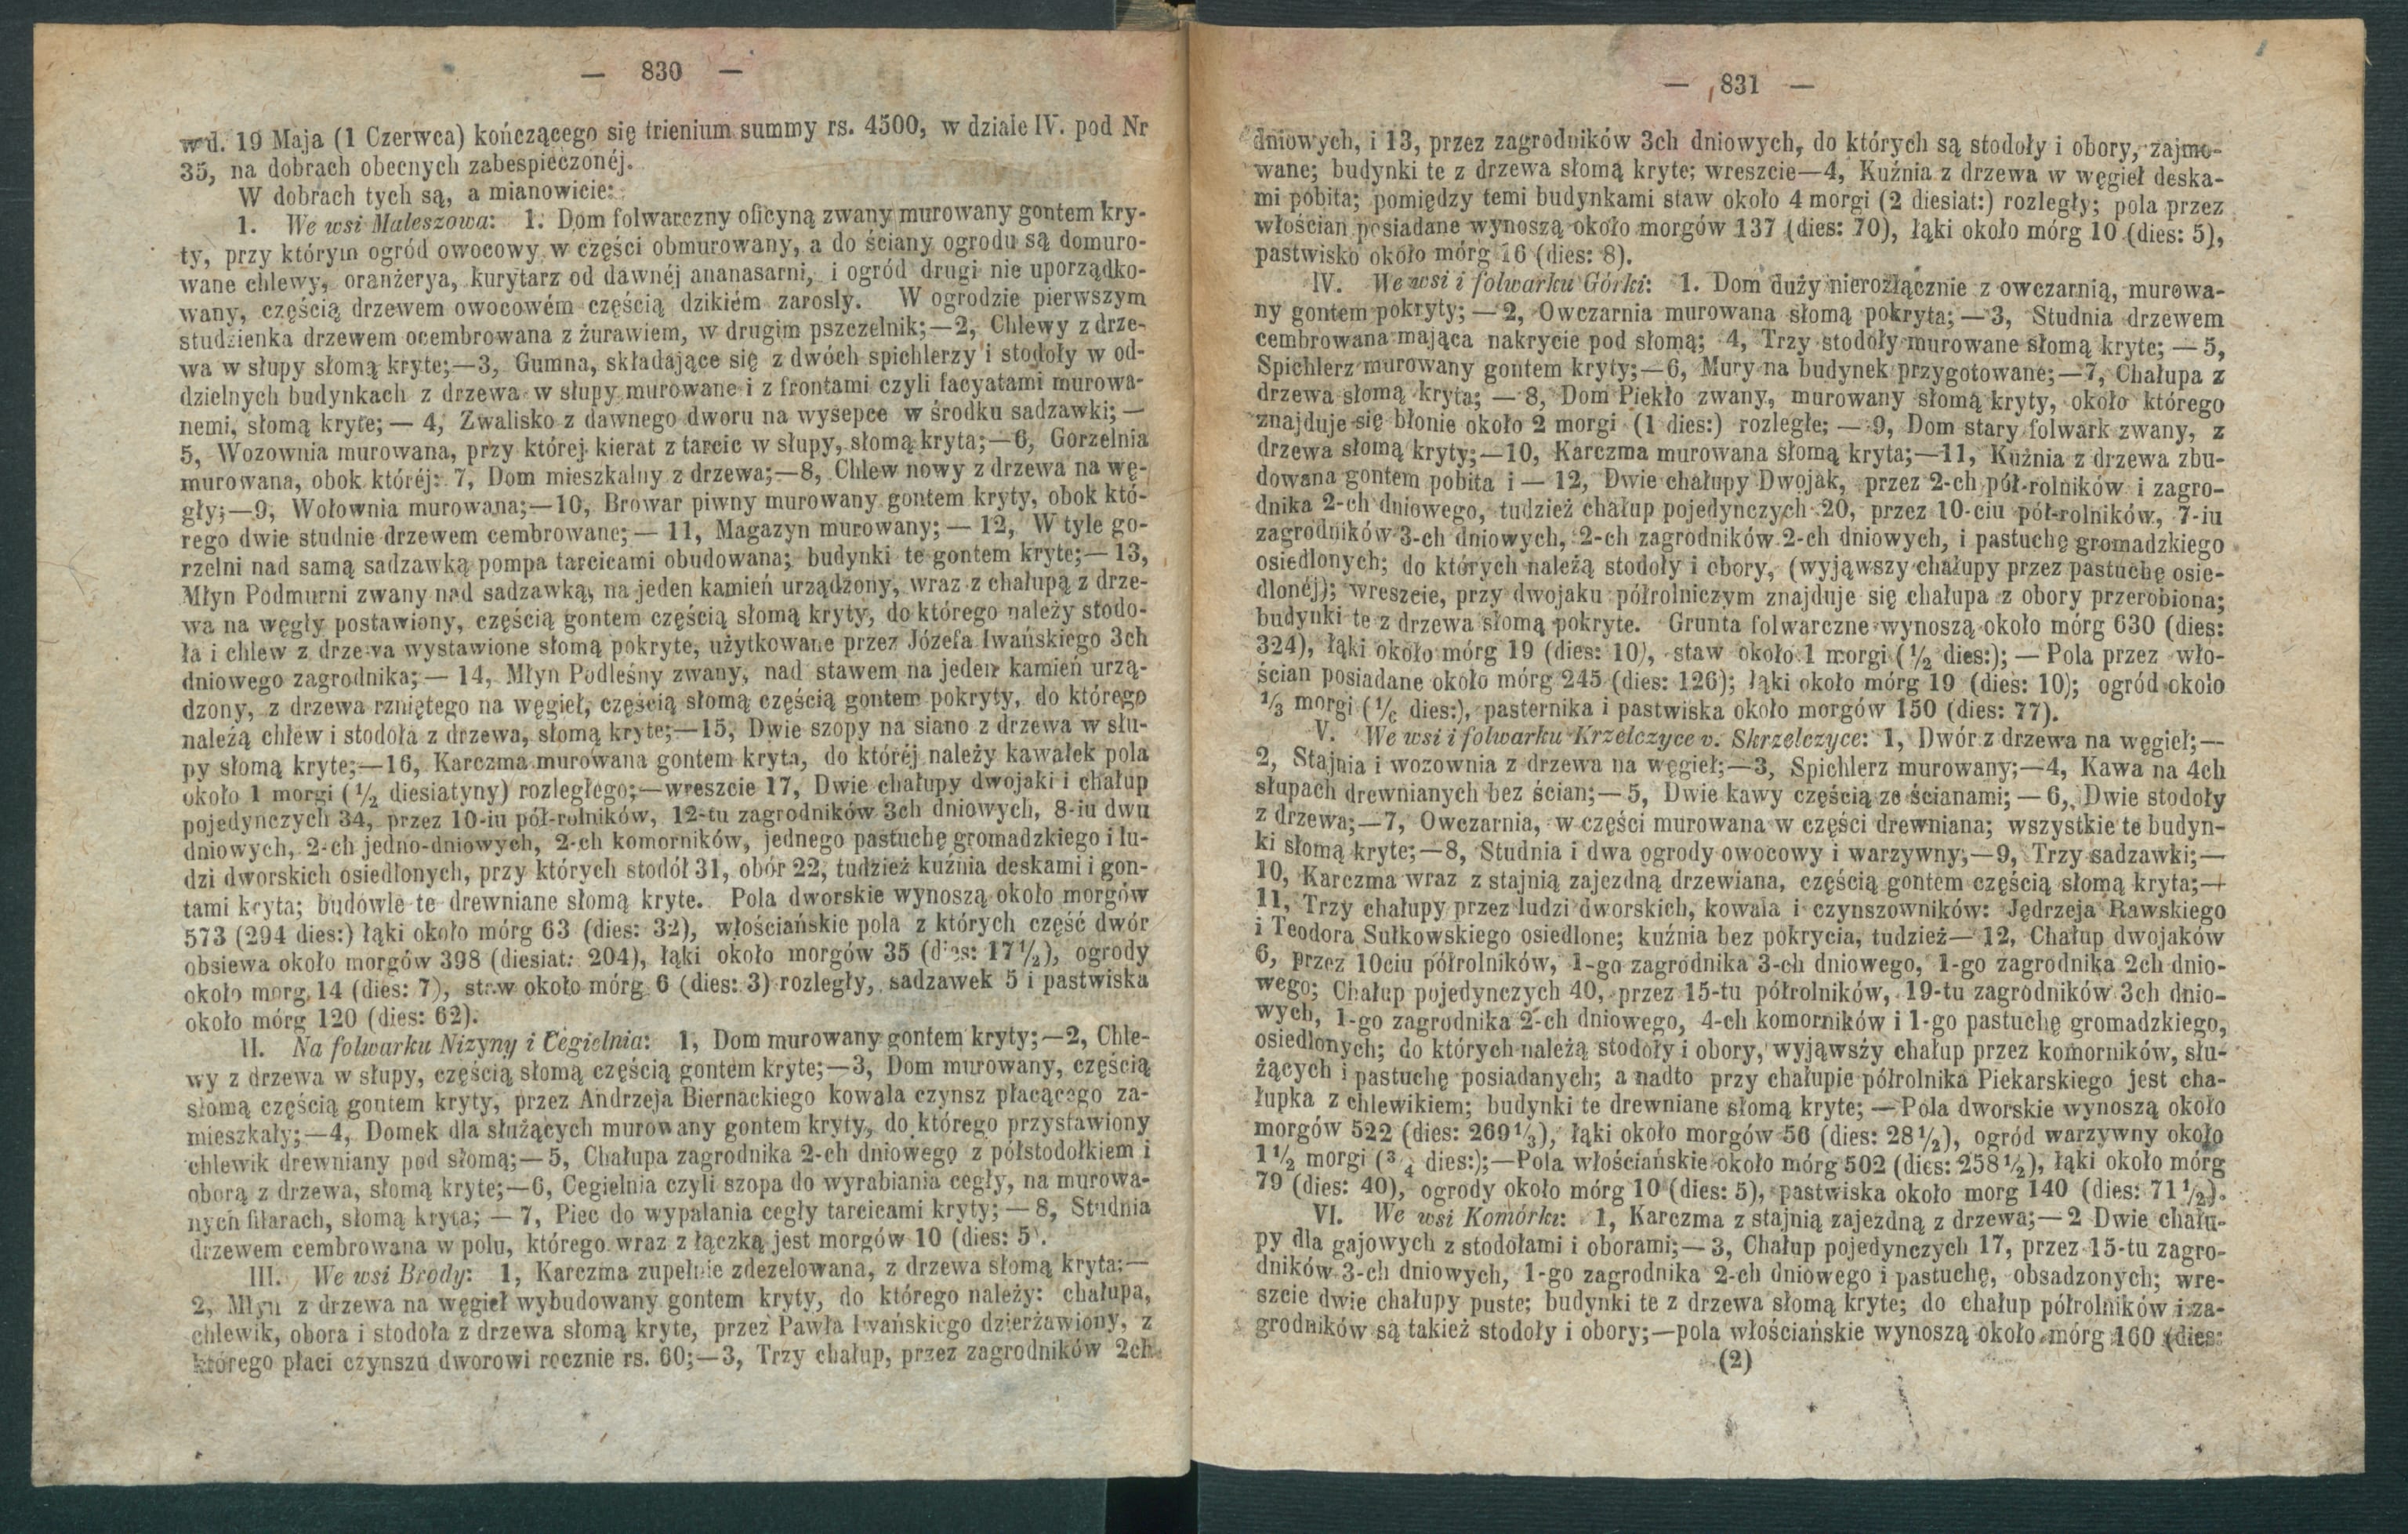 — 830 —
w d. 19 Maja (1 Czerwca) kończącego się trienium summy rs. 4500, w dziale IV. pod Nr
35, na dobrach obecnych zabespieczonéj.
W dobrach tych są, a mianowicie:
1. We wsi Maleszowa: 1. Dom folwarczny oficyną zwany murowany gontem kry-
ty, przy którym ogród owocowy w części obmurowany, a do ściany ogrodu są domuro-
wane chlewy, oranżerya, kurytarz od dawnéj ananasarni, i ogród drugi nie uporządko-
wany, częścią drzewem owocowém częścią dzikiém zarosły. W ogrodzie pierwszym
studzienka drzewem ocembrowana z żurawiem, w drugim pszczelnik;—2, Chlewy z drze-
wa w słupy słomą kryte;—3, Gumna, składające się z dwóch spichlerzy i stodoły w od-
dzielnych budynkach z drzewa w słupy murowane i z frontami czyli facyatami murowa-
nemi, słomą kryte; — 4, Zwalisko z dawnego dworu na wysepce w środku sadzawki; —
5, Wozownia murowana, przy której kierat z tarcic w słupy, słomą kryta;—6, Gorzelnia
murowana, obok któréj: 7, Dom mieszkalny z drzewa;—8, Chlew nowy z drzewa na wę-
gły;—9, Wołownia murowana;—10, Browar piwny murowany gontem kryty, obok któ-
rego dwie studnie drzewem cembrowane; — 11, Magazyn murowany; — 12, W tyle go-
rzelni nad samą sadzawką pompa tarcicami obudowana; budynki te gontem kryte;—13,
Młyn Podmurni zwany nad sadzawką, na jeden kamień urządzony, wraz z chałupą z drze-
wa na węgły postawiony, częścią gontem częścią słomą kryty, do którego należy stodo-
ła i chlew z drzewa wystawione słomą pokryte, użytkowane przez Józefa Iwańskiego 3ch
dniowego zagrodnika; — 14, Młyn Podleśny zwany, nad stawem na jeden kamień urzą-
dzony, z drzewa rzniętego na węgieł, częścią słomą częścią gontem pokryty, do którego
należą chlew i stodoła z drzewa, słomą kryte;—15, Dwie szopy na siano z drzewa w słu-
py słomą kryte;—16, Karczma murowana gontem kryta, do któréj należy kawałek pola
około 1 morgi (½ diesiatyny) rozległego;—wreszcie 17, Dwie chałupy dwojaki i chałup
pojedynczych 34, przez 10-iu pół-rolników, 12-tu zagrodników 3ch dniowych, 8-iu dwu
dniowych, 2-ch jedno-dniowych, 2-ch komorników, jednego pastuchę gromadzkiego i lu-
dzi dworskich osiedlonych, przy których stodół 31, obór 22, tudzież kuźnia deskami i gon-
tami kryta; budowle te drewniane słomą kryte. Pola dworskie wynoszą około morgów
573 (294 dies:) łąki około mórg 63 (dies: 32), włościańskie pola z których część dwór
obsiewa około morgów 398 (diesiat: 204), łąki około morgów 35 (dies: 17½), ogrody
około morg, 14 (dies: 7), staw około mórg 6 (dies: 3) rozległy, sadzawek 5 i pastwiska
około mórg 120 (dies: 62).
II. Na folwarku Nizyny i Cegielnia: 1, Dom murowany gontem kryty;—2, Chle-
wy z drzewa w słupy, częścią słomą częścią gontem kryte;—3, Dom murowany, częścią
słomą częścią gontem kryty, przez Andrzeja Biernackiego kowala czynsz płacącego za-
mieszkały;—4, Domek dla służących murowany gontem kryty, do którego przystawiony
chlewik drewniany pod słomą;—5, Chałupa zagrodnika 2-ch dniowego z półstodołkiem i
oborą z drzewa, słomą kryte;—6, Cegielnia czyli szopa do wyrabiania cegły, na murowa-
nych filarach, słomą kryta; — 7, Piec do wypalania cegły tarcicami kryty; — 8, Studnia
drzewem cembrowana w polu, którego wraz z łączką jest morgów 10 (dies: 5).
III. We wsi Brody: 1, Karczma zupełnie zdezelowana, z drzewa słomą kryta:—
2, Młyn z drzewa na węgieł wybudowany gontem kryty, do którego należy: chałupa,
chlewik, obora i stodoła z drzewa słomą kryte, przez Pawła Iwańskiego dzierżawiony, z
którego płaci czynszu dworowi rocznie rs. 60;—3, Trzy chałup, przez zagrodników 2ch
— 831 —
dniowych, i 13, przez zagrodników 3ch dniowych, do których są stodoły i obory, zajmo-
wane; budynki te z drzewa słomą kryte; wreszcie—4, Kuźnia z drzewa w węgieł deska-
mi pobita; pomiędzy temi budynkami staw około 4 morgi (2 diesiat:) rozległy; pola przez
włościan posiadane wynoszą około morgów 137 (dies: 70), łąki około mórg 10 (dies: 5),
pastwisko około mórg 16 (dies: 8).
IV. We wsi i folwarku Górki: 1. Dom duży nierozłącznie z owczarnią, murowa-
ny gontem pokryty; — 2, Owczarnia murowana słomą pokryta; — 3, Studnia drzewem
cembrowana mająca nakrycie pod słomą; 4, Trzy stodoły murowane słomą kryte; — 5,
Spichlerz murowany gontem kryty;—6, Mury na budynek przygotowane;—7, Chałupa z
drzewa słomą kryta; — 8, Dom Piekło zwany, murowany słomą kryty, około którego
znajduje się błonie około 2 morgi (1 dies:) rozległe; — 9, Dom stary folwark zwany, z
drzewa słomą kryty;—10, Karczma murowana słomą kryta;—11, Kuźnia z drzewa zbu-
dowana gontem pobita i — 12, Dwie chałupy Dwojak, przez 2-ch pół-rolników i zagro-
dnika 2-ch dniowego, tudzież chałup pojedynczych 20, przez 10-ciu pół-rolników, 7-iu
zagrodników 3-ch dniowych, 2-ch zagrodników 2-ch dniowych, i pastuchę gromadzkiego
osiedlonych; do których należą stodoły i obory, (wyjąwszy chałupy przez pastuchę osie-
dlonéj); wreszcie, przy dwojaku półrolniczym znajduje się chałupa z obory przerobiona;
budynki te z drzewa słomą pokryte. Grunta folwarczne wynoszą około mórg 630 (dies:
324), łąki około mórg 19 (dies: 10), staw około 1 morgi (½ dies:); — Pola przez wło-
ścian posiadane około mórg 245 (dies: 126); łąki około mórg 19 (dies: 10); ogród około
⅓ morgi (⅙ dies:), pasternika i pastwiska około morgów 150 (dies: 77).
V. We wsi i folwarku Krzelczyce v. Skrzelczyce: 1, Dwór z drzewa na węgieł;—
2, Stajnia i wozownia z drzewa na węgieł;—3, Spichlerz murowany;—4, Kawa na 4ch
słupach drewnianych bez ścian;—5, Dwie kawy częścią ze ścianami; — 6, Dwie stodoły
z drzewa;—7, Owczarnia, w części murowana w części drewniana; wszystkie te budyn-
ki słomą kryte;—8, Studnia i dwa ogrody owocowy i warzywny,—9, Trzy sadzawki;—
10, Karczma wraz z stajnią zajezdną drzewiana, częścią gontem częścią słomą kryta;—
11, Trzy chałupy przez ludzi dworskich, kowala i czynszowników: Jędrzeja Rawskiego
i Teodora Sułkowskiego osiedlone; kuźnia bez pokrycia, tudzież—12, Chałup dwojaków
6, przez 10ciu półrolników, 1-go zagrodnika 3-ch dniowego, 1-go zagrodnika 2ch dnio-
wego; Chałup pojedynczych 40, przez 15-tu półrolników, 19-tu zagrodników 3ch dnio-
wych, 1-go zagrodnika 2-ch dniowego, 4-ch komorników i 1-go pastuchę gromadzkiego,
osiedlonych; do których należą stodoły i obory, wyjąwszy chałup przez komorników, słu-
żących i pastuchę posiadanych; a nadto przy chałupie półrolnika Piekarskiego jest cha-
łupka z chlewikiem; budynki te drewniane słomą kryte; — Pola dworskie wynoszą około
morgów 522 (dies: 269⅓), łąki około morgów 56 (dies: 28½), ogród warzywny około
1½ morgi (¾ dies:);—Pola włościańskie około mórg 502 (dies: 258½), łąki około mórg
79 (dies: 40), ogrody około mórg 10 (dies: 5), pastwiska około morg 140 (dies: 71½).
VI. We wsi Komórki: 1, Karczma z stajnią zajezdną z drzewa;—2 Dwie chału-
py dla gajowych z stodołami i oborami;—3, Chałup pojedynczych 17, przez 15-tu zagro-
dników 3-ch dniowych, 1-go zagrodnika 2-ch dniowego i pastuchę, obsadzonych; wre-
szcie dwie chałupy puste; budynki te z drzewa słomą kryte; do chałup półrolników i za-
grodników są takież stodoły i obory;—pola włościańskie wynoszą około mórg 160 (dies:
(2)